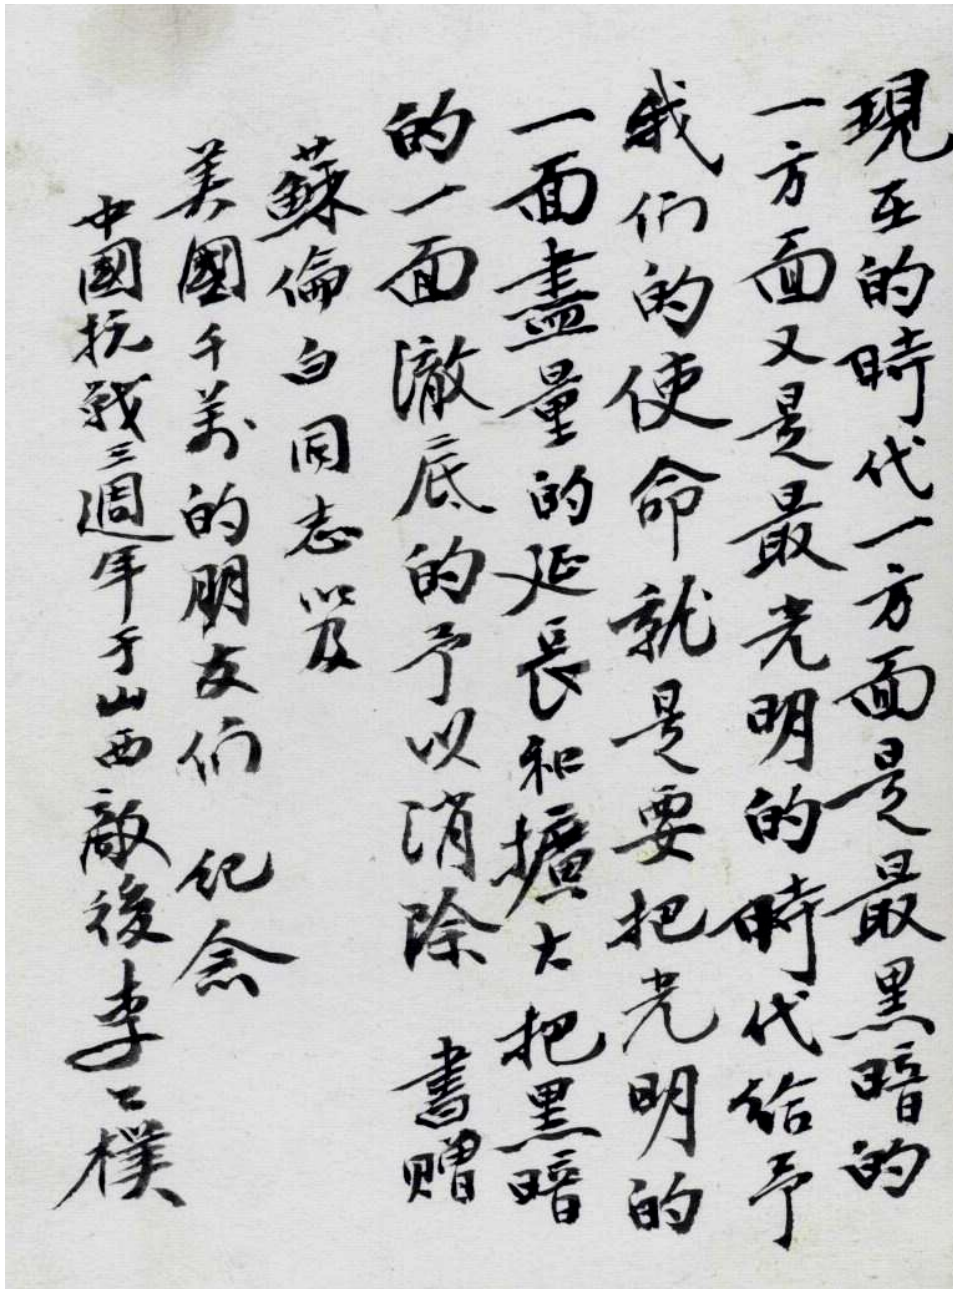 現在的時代一方面是最黑暗的
一方面又是最光明的時代給予
我们的使命就是要把光明的
一面盡量的延長和擴大把黑暗
的一面澈底的予以消除 書贈
蘇倫白同志以及
美國千萬的朋友们 紀念
中國抗戰三週年于山西敵後李公樸